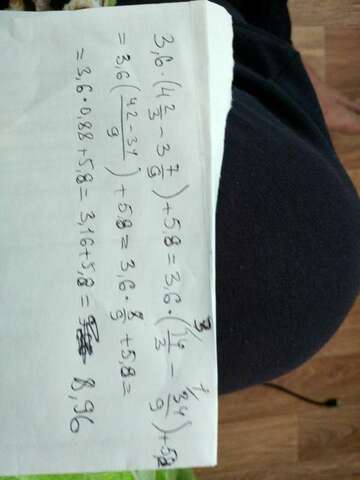 3,6·(4 2/3 − 3 7/9) + 5,8 = 3,6·(14/3 − 34/9) + 5,8
= 3,6(42−34/9) + 5,8 = 3,6·8/9 + 5,8 =
= 3,6·0,88 + 5,8 = 3,16 + 5,8 = 8,96